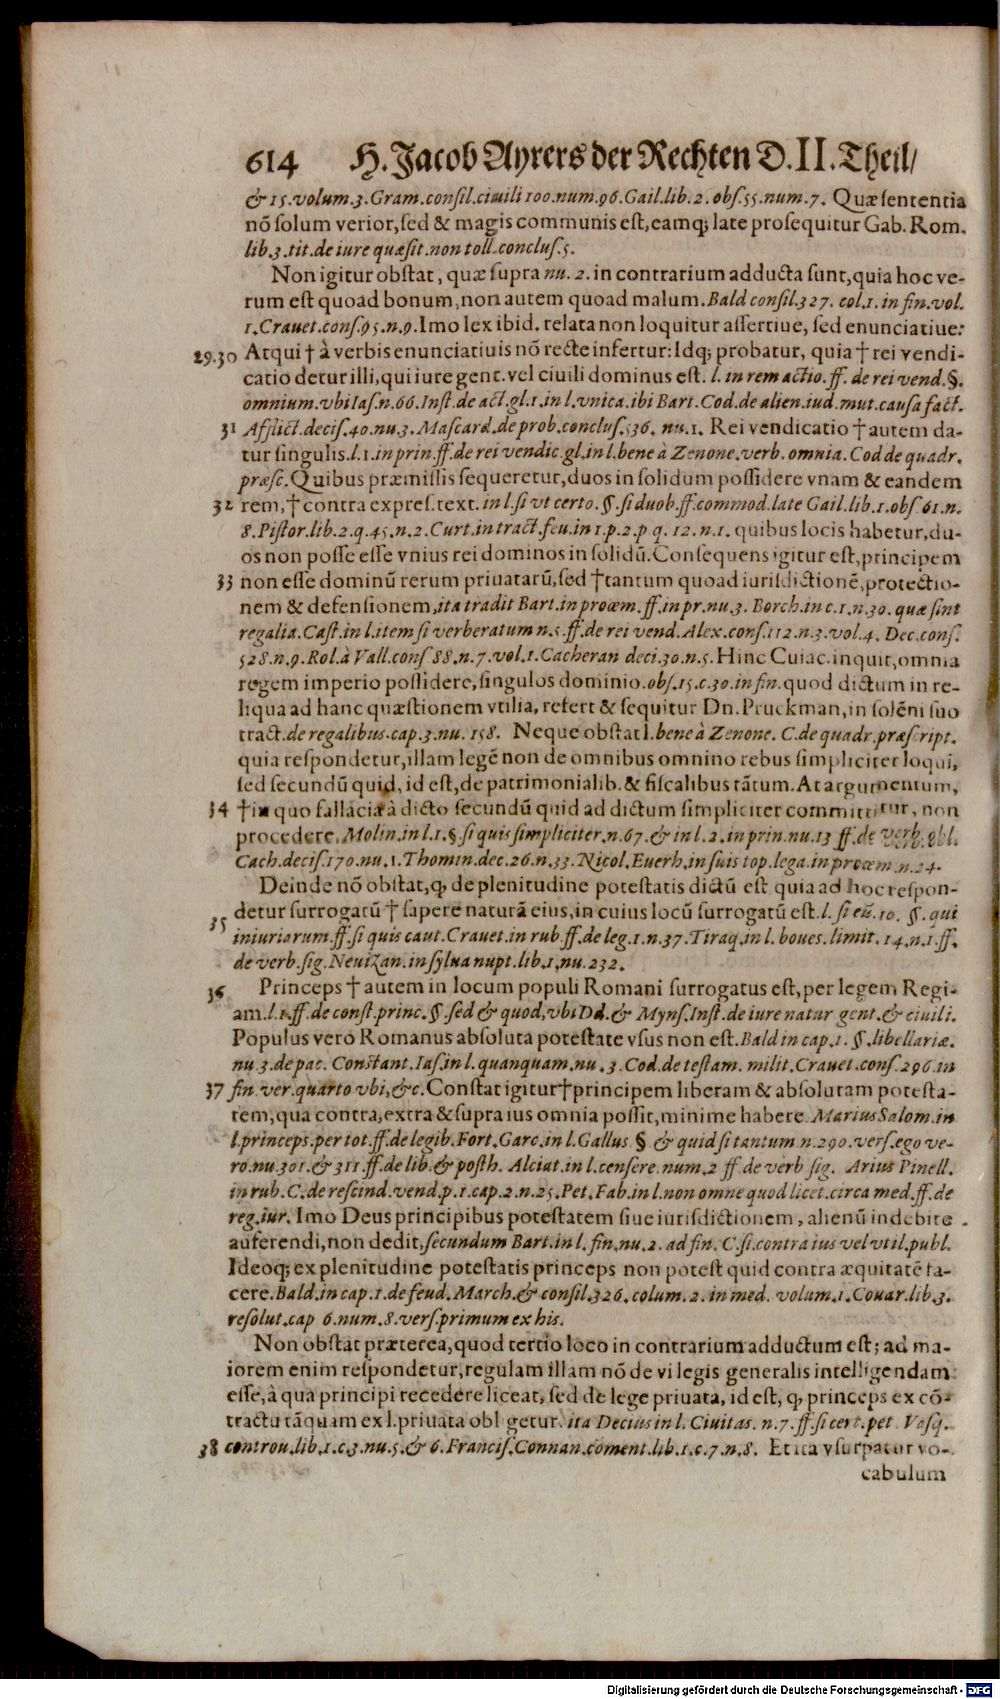 614 H. Jacob Ayrers der Rechten D. II. Theil/
& 15. volum. 3. Gram. consil. ciuili 100. num. 96. Gail. lib. 2. obs. 55. num. 7. Quæ sententia
nõ solum verior, sed & magis communis est, eamq; late prosequitur Gab. Rom.
lib. 3. tit. de iure quæsit. non toll. conclus. 5.
Non igitur obstat, quæ supra nu. 2. in contrarium adducta sunt, quia hoc ve-
rum est quoad bonum, non autem quoad malum. Bald consil. 327. col. 1. in fin. vol.
1. Crauet. cons. 95. n. 9. Imo lex ibid. relata non loquitur assertiue, sed enunciatiue:
29. 30 Atqui † à verbis enunciatiuis nõ recte infertur: Idq; probatur, quia † rei vendi-
catio detur illi, qui iure gent. vel ciuili dominus est. l. in rem actio. ff. de rei vend. §.
omnium. vbi Ias. n. 66. Inst. de act. gl. 1. in l. vnica. ibi Bart. Cod. de alien. iud. mut. causa fact.
31 Afflict. decis. 40. nu. 3. Mascard. de prob. conclus. 536. nu. 1. Rei vendicatio † autem da-
tur singulis. l. 1. in prin. ff. de rei vendic. gl. in l. bene à Zenone. verb. omnia. Cod de quadr.
præsc. Quibus præmissis sequeretur, duos in solidum possidere vnam & eandem
32 rem, † contra expres. text. in l. si vt certo. §. si duob. ff. commod. late Gail. lib. 1. obs 61. n.
8. Pistor. lib. 2. q. 45. n. 2. Curt. in tract. feu. in 1. p. 2. p q. 12. n. 1. quibus locis habetur, du-
os non posse esse vnius rei dominos in solidũ. Consequens igitur est, principem
33 non esse dominũ rerum priuatarũ, sed † tantum quoad iurisdictionẽ, protectio-
nem & defensionem, ita tradit Bart. in proœm. ff. in pr. nu. 3. Borch. in c. 1. n. 30. quæ sint
regalia. Cast. in l. item si verberatum n. 5. ff. de rei vend. Alex. cons. 112. n. 3. vol. 4. Dec. cons.
528. n. 9. Rol. à Vall. cons 88. n. 7. vol. 1. Cacheran deci. 30. n. 5. Hinc Cuiac. inquit, omnia
regem imperio possidere, singulos dominio. obs. 15. c. 30. in fin. quod dictum in re-
liqua ad hanc quæstionem vtilia, refert & sequitur Dn. Pruckman, in solẽni suo
tract. de regalibus. cap. 3. nu. 158. Neque obstat l. bene à Zenone. C. de quadr. præscript.
quia respondetur, illam legẽ non de omnibus omnino rebus simpliciter loqui,
sed secundũ quid, id est, de patrimonialib. & fiscalibus tãtum. At argumentum,
34 † in quo fallacia à dicto secundũ quid ad dictum simpliciter committitur, non
procedere. Molin. in l. 1. §. si quis simpliciter. n. 67. & in l. 2. in prin. nu. 13 ff. de verb. obl.
Cach. decis. 170. nu. 1. Thomin. dec. 26. n. 33. Nicol. Euerh. in suis top. lega. in proœm. n. 24.
Deinde nõ obstat, q, de plenitudine potestatis dictũ est quia ad hoc respon-
35 detur surrogatũ † sapere naturã eius, in cuius locũ surrogatũ est. l. si eũ. 10. §. qui
iniuriarum. ff. si quis caut. Crauet. in rub. ff. de leg. 1. n. 37. Tiraq. in l. boues. limit. 14. n. 1. ff.
de verb. sig. Neuizan. in sylua nupt. lib. 1. nu. 232.
36 Princeps † autem in locum populi Romani surrogatus est, per legem Regi-
am. l. 1. ff. de const. princ. §. sed & quod, vbi Dd. & Myns. Inst. de iure natur gent. & ciuili.
Populus vero Romanus absoluta potestate vsus non est. Bald in cap. 1. §. libellariæ.
nu 3. de pac. Constant. Ias. in l. quanquam. nu. 3. Cod. de testam. milit. Crauet. cons. 296. in
37 fin. ver. quarto vbi, &c. Constat igitur † principem liberam & absolutam potesta-
tem, qua contra, extra & supra ius omnia possit, minime habere. Marius Salom. in
l. princeps. per tot. ff. de legib. Fort. Garc. in l. Gallus § & quid si tantum n. 290. vers. ego ve-
ro. nu. 301. & 311. ff. de lib. & posth. Alciat. in l. censere. num. 2 ff. de verb sig. Arius Pinell.
in rub. C. de rescind. vend. p. 1. cap. 2. n. 25. Pet. Fab. in l. non omne quod licet. circa med. ff. de
reg. iur. Imo Deus principibus potestatem siue iurisdictionem, alienũ indebite
auferendi, non dedit, secundum Bart. in l. fin. nu. 2. ad fin. C. si contra ius vel vtil. publ.
Ideoq; ex plenitudine potestatis princeps non potest quid contra æquitatẽ fa-
cere. Bald. in cap. 1. de feud. March. & consil. 326. colum. 2. in med. volum. 1. Couar. lib. 3.
resolut. cap 6. num. 8. vers. primum ex his.
Non obstat præterea, quod tertio loco in contrarium adductum est; ad ma-
iorem enim respondetur, regulam illam nõ de vi legis generalis intelligendam
esse, à qua principi recedere liceat, sed de lege priuata, id est, q, princeps ex cõ-
tractu tãquam ex l. priuata obl getur. ita Decius in l. Ciuitas. n. 7. ff. si cert. pet. Vasq.
38 controu. lib. 1. c. 3. nu. 5. & 6. Francis. Connan. coment. lib. 1. c. 7. n. 8. Et ita vsurpatur vo-
cabulum
Digitalisierung gefördert durch die Deutsche Forschungsgemeinschaft - DFG